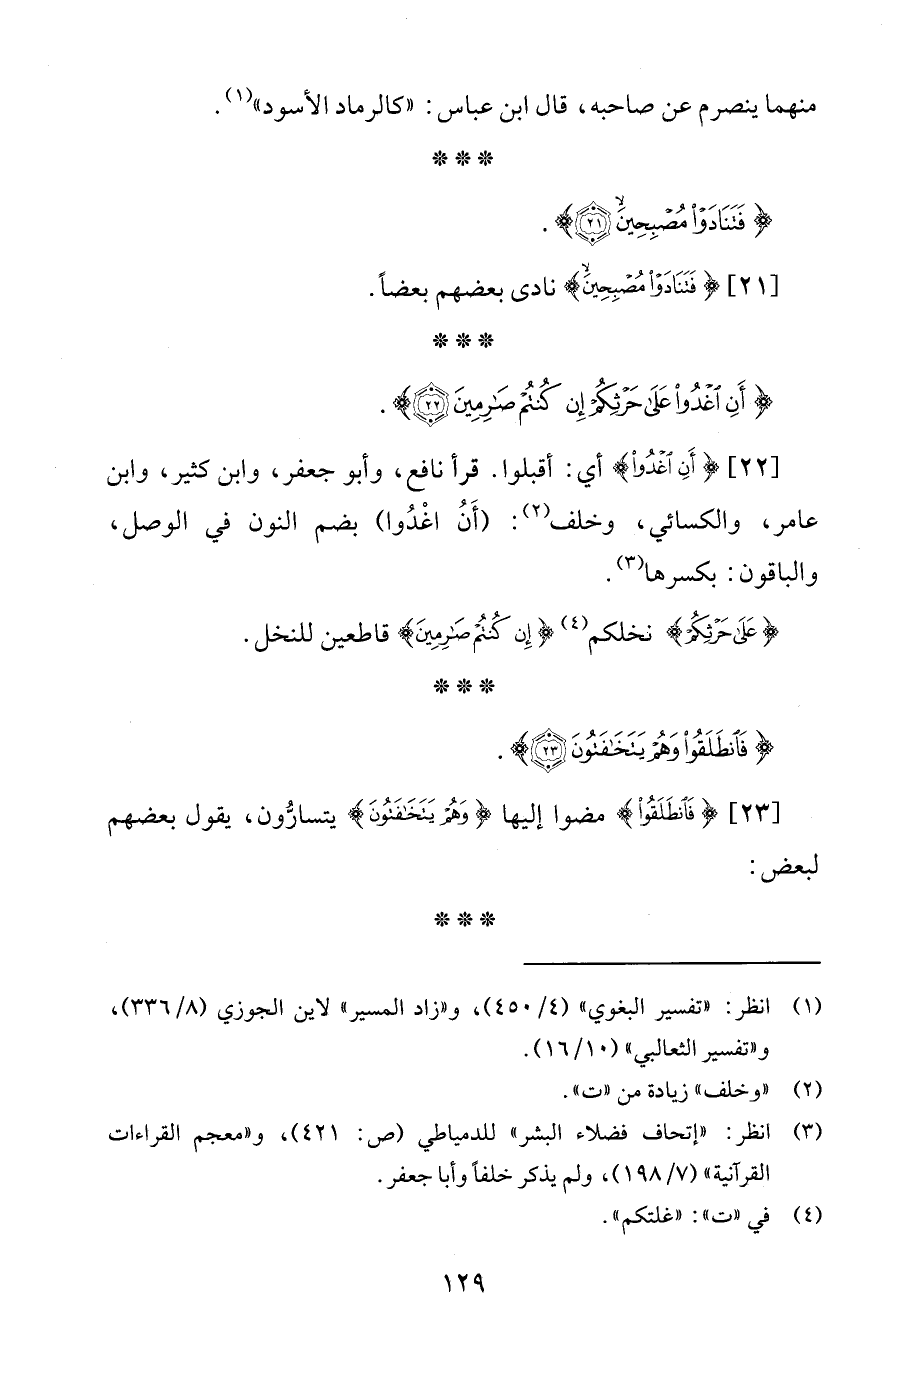 منهما ينصرم عن صاحبه، قال ابن عباس: «كالرماد الأسود»(١).
* * *
﴿ فَتَنَادَوْا۟ مُصْبِحِينَ ۙ ٢١ ﴾.
[٢١] ﴿ فَتَنَادَوْا۟ مُصْبِحِينَ ۙ﴾ نادى بعضهم بعضاً.
* * *
﴿ أَنِ ٱغْدُوا۟ عَلَىٰ حَرْثِكُمْ إِن كُنتُمْ صَـٰرِمِينَ ٢٢ ﴾.
[٢٢] ﴿ أَنِ ٱغْدُوا۟﴾ أي: أقبلوا. قرأ نافع، وأبو جعفر، وابن كثير، وابن
عامر، والكسائي، وخلف(٢): (أَنُ اغْدُوا) بضم النون في الوصل،
والباقون: بكسرها(٣).
﴿ عَلَىٰ حَرْثِكُمْ﴾ نخلكم(٤) ﴿ إِن كُنتُمْ صَـٰرِمِينَ﴾ قاطعين للنخل.
* * *
﴿ فَٱنطَلَقُوا۟ وَهُمْ يَتَخَـٰفَتُونَ ٢٣ ﴾.
[٢٣] ﴿ فَٱنطَلَقُوا۟﴾ مضوا إليها ﴿ وَهُمْ يَتَخَـٰفَتُونَ﴾ يتسارُّون، يقول بعضهم
لبعض:
* * *
(١) انظر: «تفسير البغوي» (٤/ ٤٥٠)، و«زاد المسير» لابن الجوزي (٨/ ٣٣٦)،
و«تفسير الثعالبي» (١٠/ ١٦).
(٢) «وخلف» زيادة من «ت».
(٣) انظر: «إتحاف فضلاء البشر» للدمياطي (ص: ٤٢١)، و«معجم القراءات
القرآنية» (٧/ ١٩٨)، ولم يذكر خلفاً وأبا جعفر.
(٤) في «ت»: «غلتكم».
١٢٩